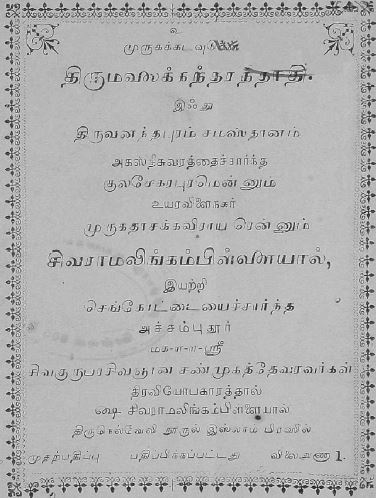 உ
முருகக்கடவுள்
திருமலைக்கந்தரந்தாதி.
இஃது
திருவனந்தபுரம் சமஸ்தானம்
அகஸ்தீசுவரத்தைச்சார்ந்த
குலசேகரபுரமென்னும்
உயரவிளைநகர்
முருகதாசக்கவிராய ரென்னும்
சிவராமலிங்கம்பிள்ளையால்,
இயற்றி
செங்கோட்டையைச்சார்ந்த
அச்சம்புதூர்
மக-ா-ா-ஸ்ரீ
சிவகுருபரசிவஞான சண்முகத்தேவரவர்கள்
திரவியோபகாரத்தால்
ஷை சிவராமலிங்கம்பிள்ளையால்
திருநெல்வேலி நூருல் இஸ்லாம் பிரஸில்
முதற்பதிப்பு பதிப்பிக்கப்பட்டது விலைஅணா 1.